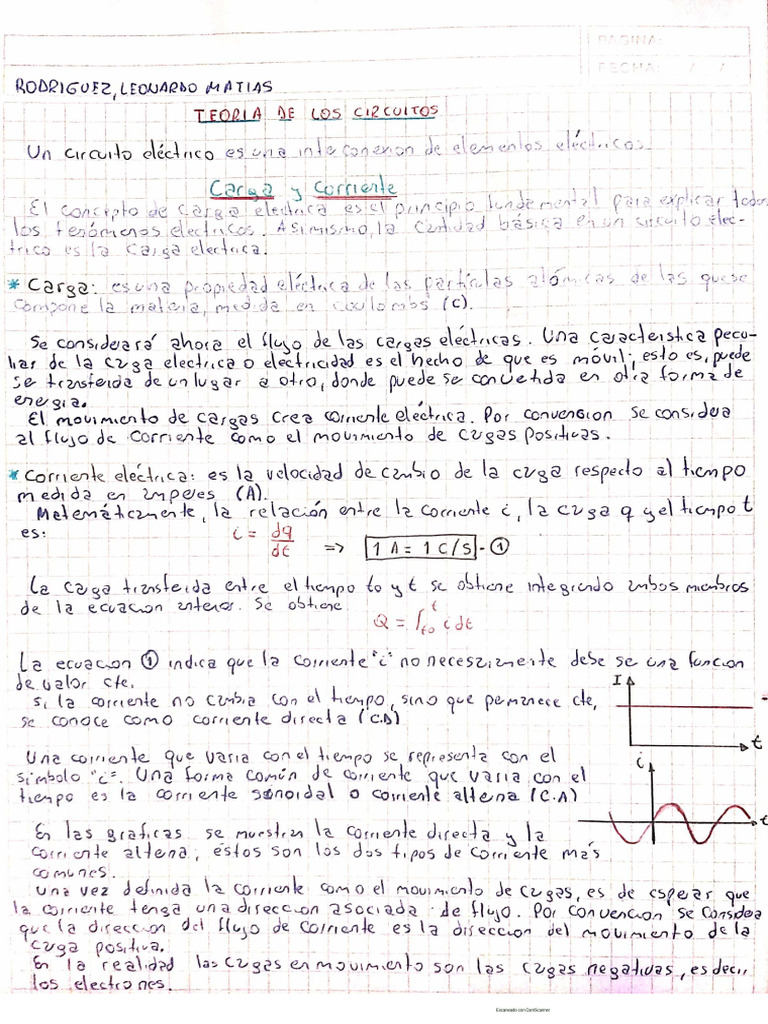 PAGINA:
FECHA: / /
RODRIGUEZ, LEONARDO MATIAS
TEORIA DE LOS CIRCUITOS
Un circuito eléctrico es una interconexion de elementos eléctricos.
Carga y Corriente
El concepto de carga electrica es el principio fundamental para explicar todos
los fenómenos electricos. Asimismo, la cantidad básica en un circuito eléc-
trico es la carga electrica.
* Carga: es una propiedad eléctrica de las partículas atómicas de las que se
compone la materia, medida en coulombs (C).
Se considerará ahora el flujo de las cargas eléctricas. Una característica pecu-
liar de la carga electrica o electricidad es el hecho de que es móvil; esto es, puede
ser transferida de un lugar a otro, donde puede ser convertida en otra forma de
energía.
El movimiento de cargas crea corriente eléctrica. Por convencion se considera
al flujo de corriente como el movimiento de cargas positivas.
* Corriente eléctrica: es la velocidad de cambio de la carga respecto al tiempo
medida en amperes (A).
Matemáticamente, la relación entre la corriente i, la carga q y el tiempo t
es: i = dq/dt => 1 A = 1 C/S - ①
La carga transferida entre el tiempo to y t se obtiene integrando ambos miembros
de la ecuacion anterior. Se obtiene
Q = ∫ₜₒᵗ i dt
La ecuacion ① indica que la corriente "i" no necesariamente debe ser una funcion
de valor cte.
Si la corriente no cambia con el tiempo, sino que permanece cte,
se conoce como corriente directa (C.D)
I
t
Una corriente que varia con el tiempo se representa con el
simbolo "i". Una forma común de corriente que varia con el
tiempo es la corriente senoidal o corriente alterna (C.A)
i
t
En las graficas se muestran la corriente directa y la
corriente alterna; éstos son los dos tipos de corriente más
comunes.
Una vez definida la corriente como el movimiento de cargas, es de esperar que
la corriente tenga una direccion asociada de flujo. Por convencion se considera
que la direccion del flujo de corriente es la direccion del movimiento de la
carga positiva.
En la realidad las cargas en movimiento son las cargas negativas, es decir,
los electrones.
Escaneado con CamScanner